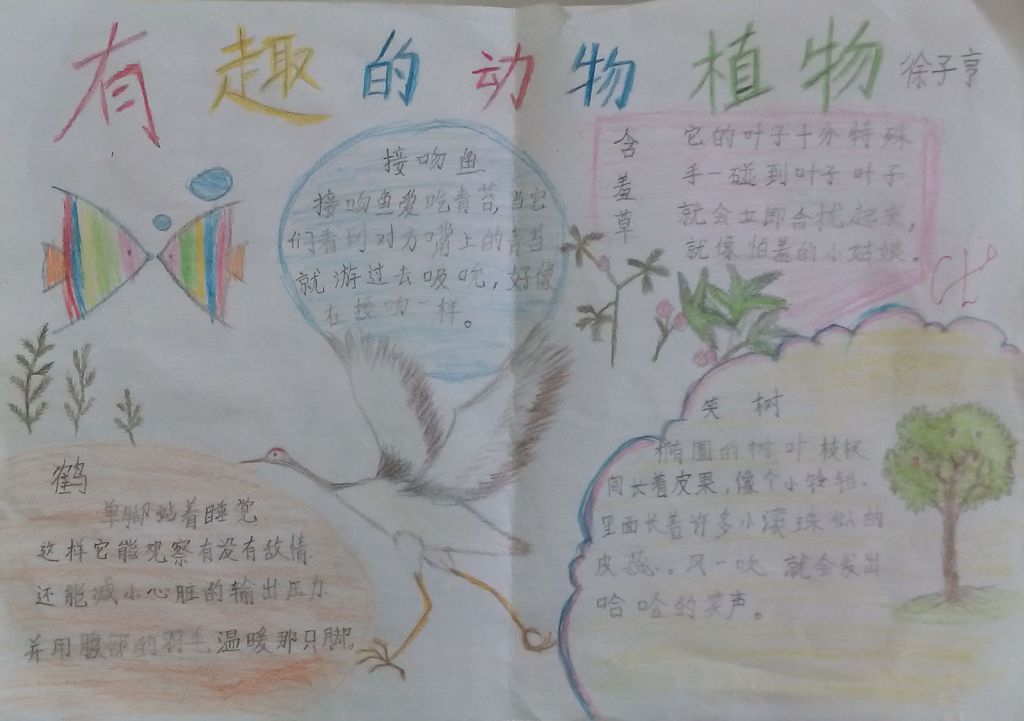 有趣的动物植物
徐子亨
接吻鱼
接吻鱼爱吃青苔,当它
们看到对方嘴上的青苔
就游过去吸吮,好像
在接吻一样。
含羞草
它的叶子十分特殊
手一碰到叶子叶子
就会立即合拢起来,
就像怕羞的小姑娘。
鹤
单脚站着睡觉
这样它能观察有没有敌情
还能减小心脏的输出压力
并用腹部的羽毛温暖那只脚。
笑树
椭圆的树叶枝杈
间长着皮果,像个小铃铛.
里面长着许多小滚珠似的
皮蕊。风一吹就会发出
哈哈的笑声。